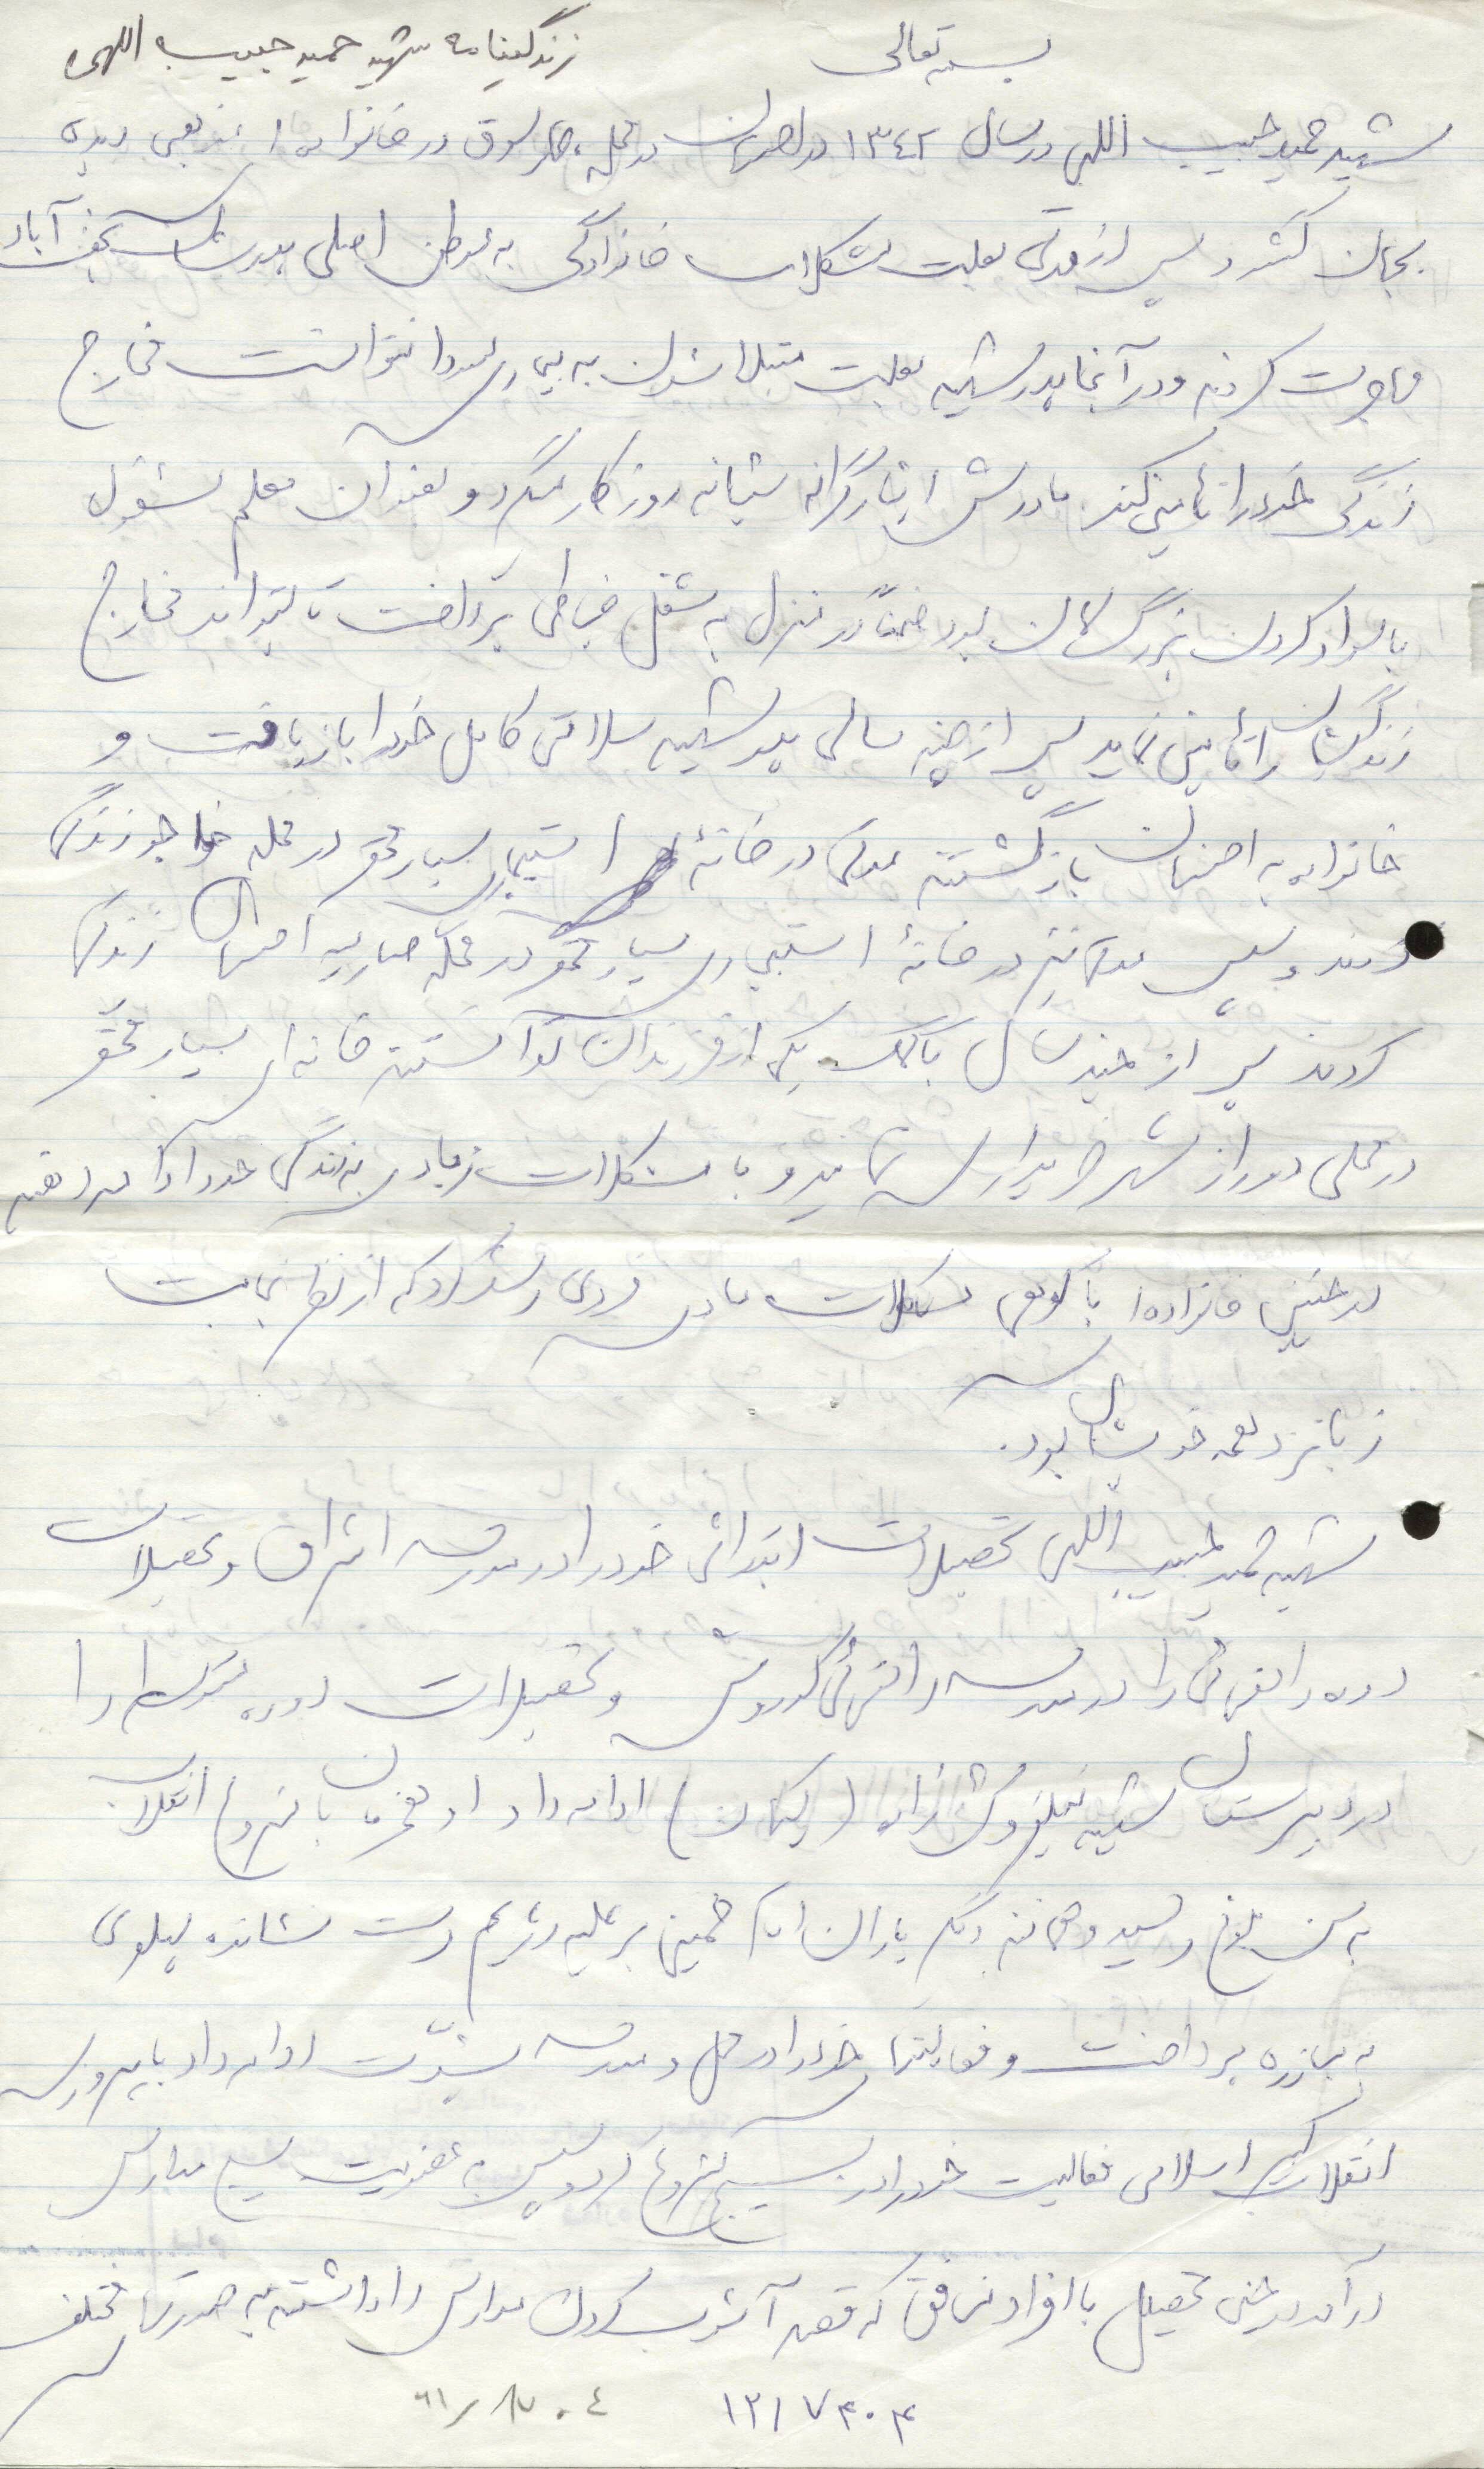 بسمه تعالی
زندگینامه شهید حمید حبیب اللهی
شهید حمید حبیب اللهی در سال ۱۳۴۲ در اصفهان در محله چهارسوق در خانواده ا مذهبی دیده
بجهان گشود و پس از مدتی بعلت مشکلات خانوادگی به موطن اصلی پدرشان نجف آباد
مهاجرت کردند و در آنجا پدر شهید بعلت مبتلا شدن به بیماری نتوانست مخارج
زندگی خود را تأمین کند. مادرش ایثارگرانه شبانه روز کار میکرد و بعنوان معلم مشغول
باسواد کردن بزرگسالان بود ضمناً در منزل به شغل خیاطی پرداخت تا بتواند مخارج
زندگیشان را تأمین نماید پس از چند سالی پدر شهید سلامتی کامل خود را بازیافت و
خانواده به اصفهان بازگشته مدتی در خانهٔ استیجاری بسیار محقر در محله خواجو زندگی
کردند و سپس مدتی نیز در خانهٔ استیجاری بسیار محقر در محله اصفهان زندگی
کردند پس از چند سال با کمک یکی از فرزندان توانستند خانه ای بسیار محقر
در محلی دور از شهر خریداری نمایند و با مشکلات زیادی به زندگی خود ادامه دهند
در چنین خانواده ا با کوهی مشکلات مادی فردی رشد کرد که از نظر نجابت
زبانزد همه خویشان بود.
شهید حمید حبیب اللهی تحصیلات ابتدائی خود را در مدرسه اشراق و تحصیلات
دوره راهنمائی را در مدرسه راهنمائی کوروش و تحصیلات دوره متوسطه را
در دبیرستان شهید نیلفروش زاده ادامه داد او همزمان با شروع انقلاب
به سن بلوغ رسید و همانند دیگر یاران امام خمینی بر علیه رژیم دست نشانده پهلوی
به مبارزه پرداخت و فعالیتهای خود را در محل و مدرسه بشدّت ادامه داد با پیروزی
انقلاب اسلامی فعالیت خود را در بسیج شروع کرد و سپس به عضویت بسیج مدارس
درآمد در حین تحصیل با افراد منافق که قصد آشوب کردن مدارس را داشتند به صورتهای مختلف
۱۲۱۷۳۰۴